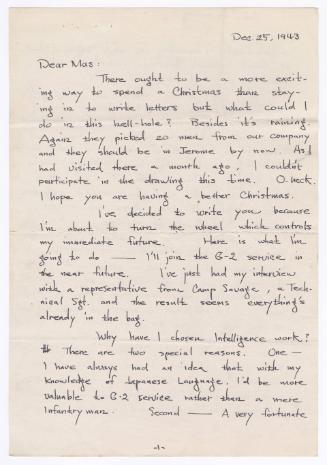 Dec. 25, 1943
Dear Mas:
There ought to be a more excit-
ing way to spend a Christmas than stay-
ing in to write letters but what could I
do in this hell-hole? Besides it's raining.
Again they picked 20 men from our company
and they should be in Jerome by now. As I
had visited there a month ago, I couldn't
participate in the drawing this time. O. heck.
I hope you are having a better Christmas.
I've decided to write you because
I'm about to turn the wheel which controls
my immediate future. Here is what I'm
going to do — I'll join the G-2 service in
the near future. I've just had my interview
with a representative from Camp Savage, a Tech-
nical Sgt. and the result seems everything's
already in the bag.
Why have I chosen Intelligence work?
There are two special reasons. One —
I have always had an idea that with my
knowledge of Japanese Language, I'd be more
valuable to G-2 service rather than a mere
infantryman. Second — A very fortunate
-1-